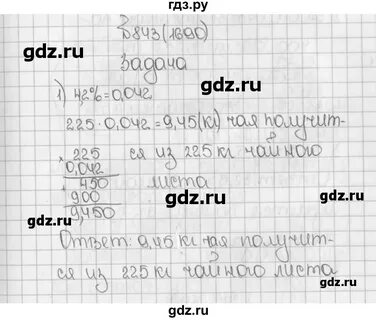 gdz.ru
№843(1690)
gdz.ru
gdz.ru
Задача
1) 4,2%=0,042
gdz.ru
225·0,042=9,45(кг) чая получит-
ся из 225 кг чайного
листа
× 225
0,042
+ 450
900
9,450
gdz.ru
gdz.ru
Ответ: 9,45 кг чая получит-
ся из 225 кг чайного листа
gdz.ru
gdz.ru